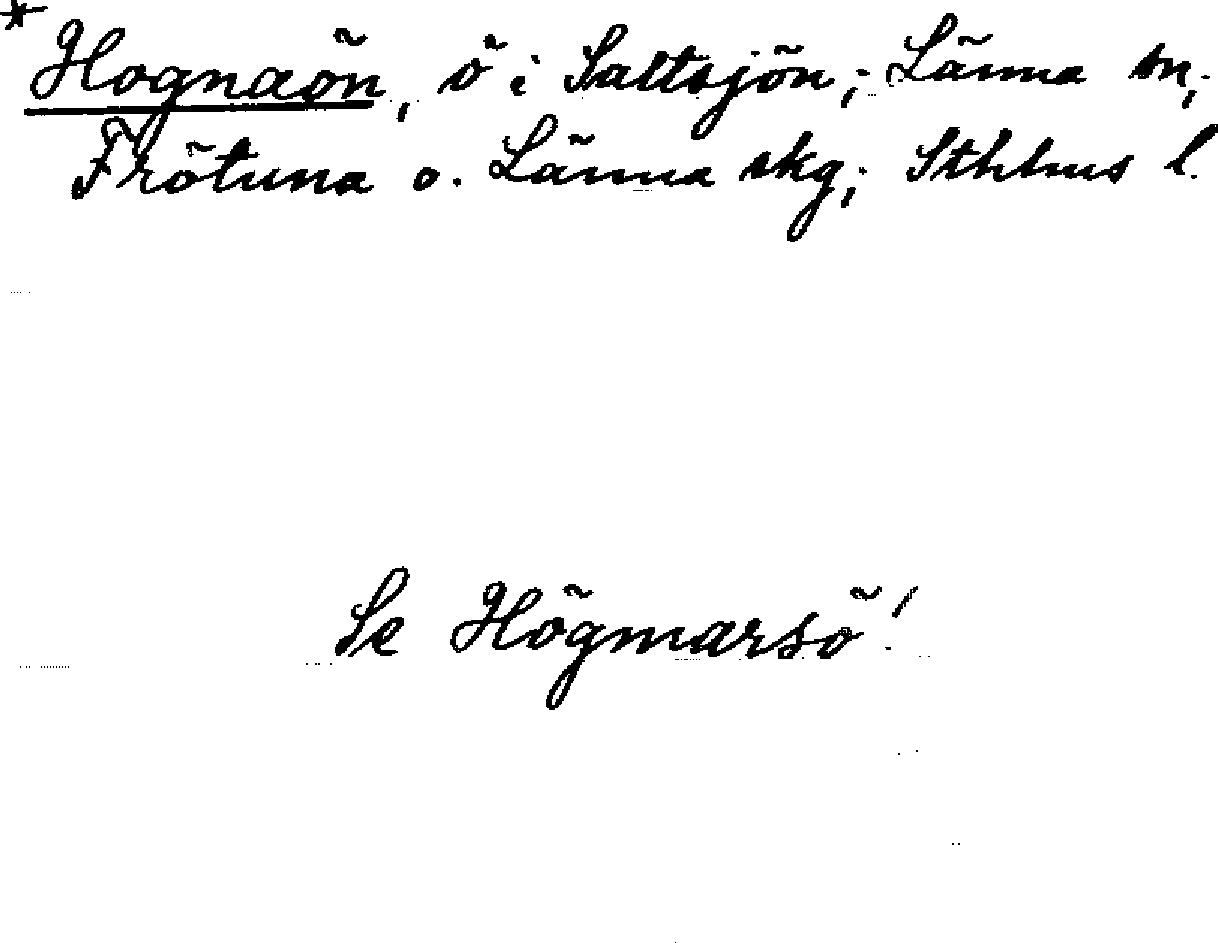 * Hognaön, ö i Saltsjön; Länna sn;
Frötuna o. Länna skg; Sthlms l.
Se Högmarsö!